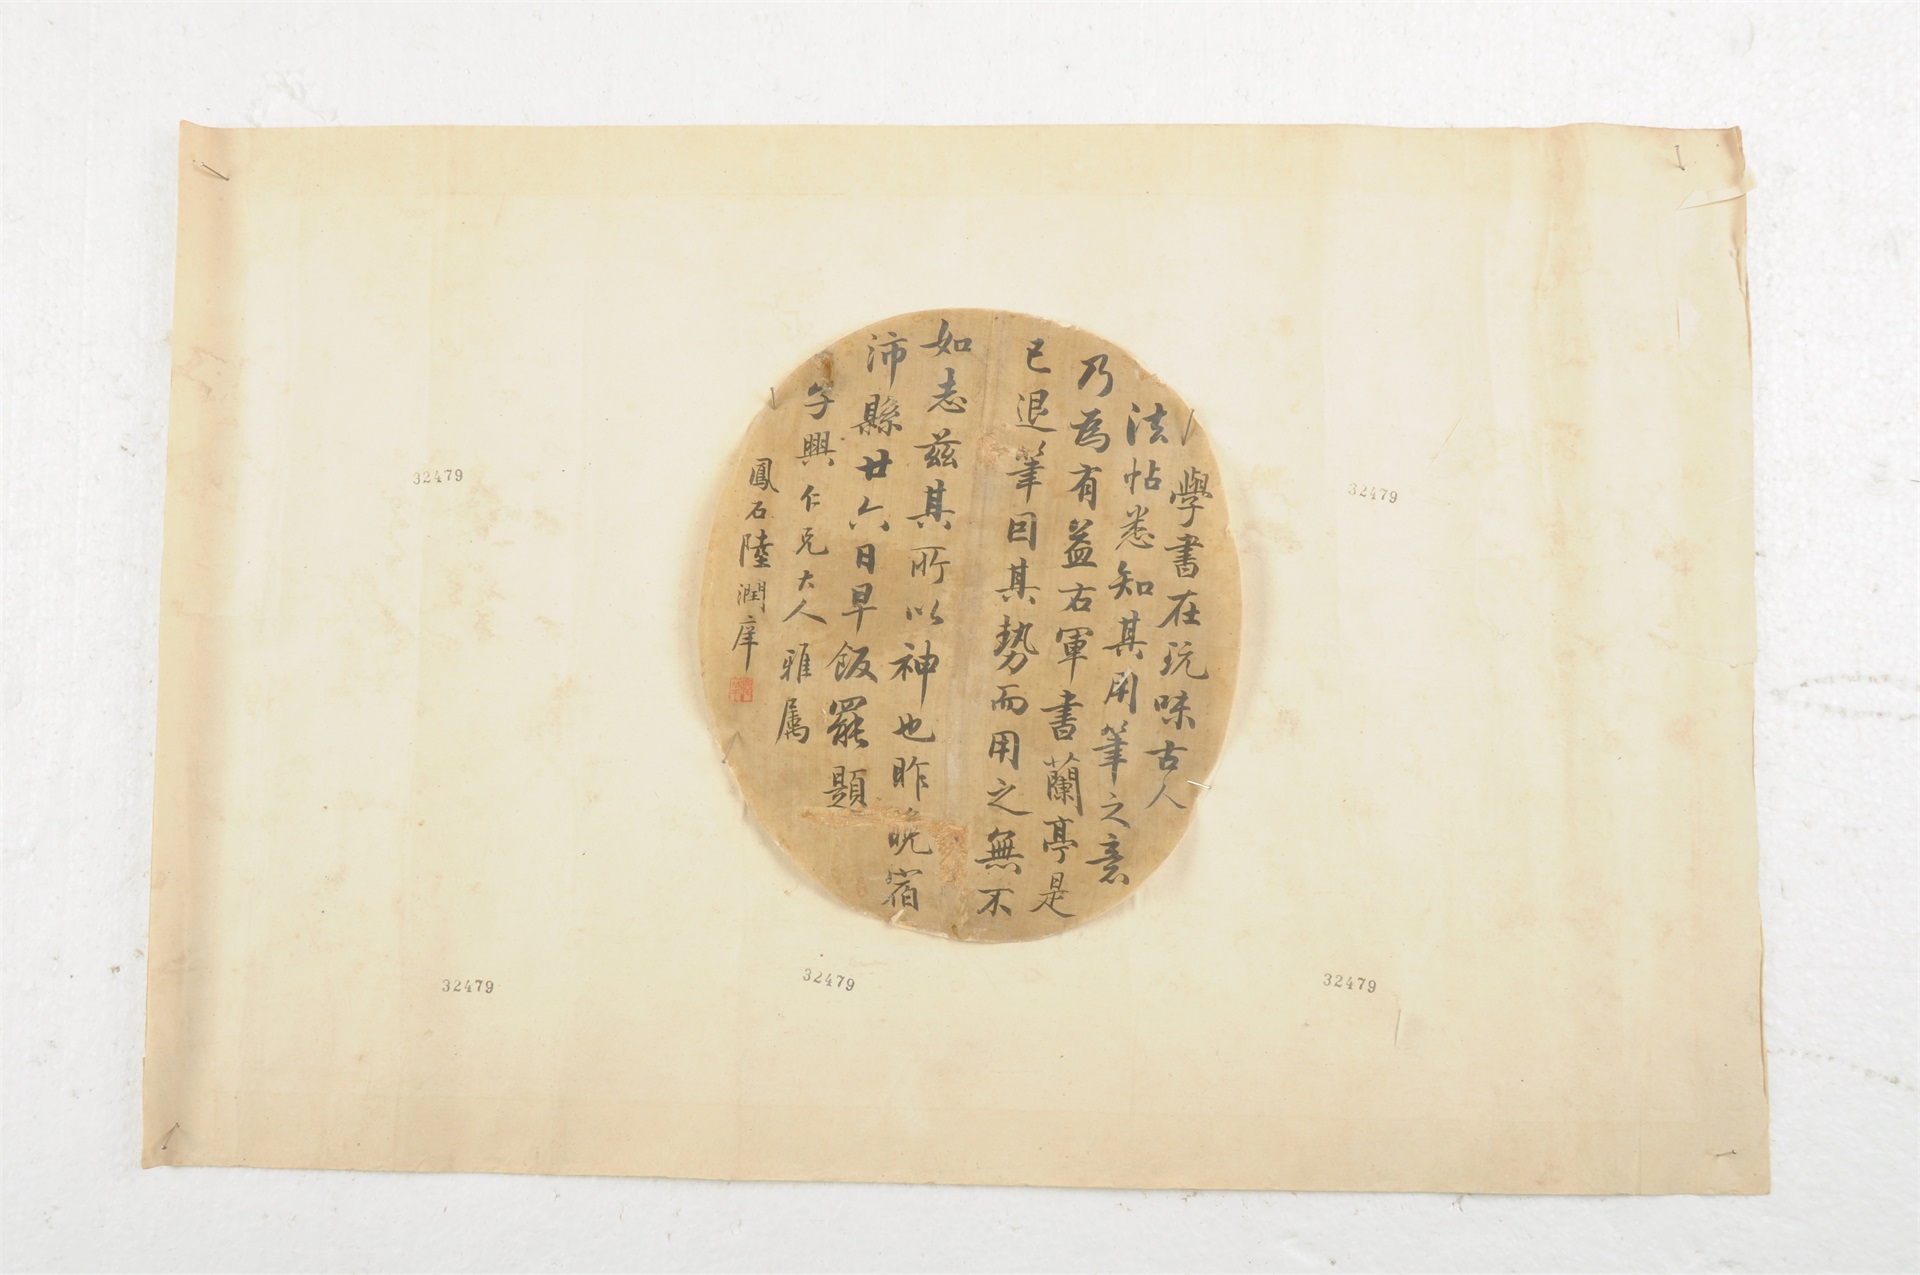 學書在玩味古人
法帖悉知其用筆之意
乃為有益右軍書蘭亭是
已退筆因其勢而用之無不
如志兹其所以神也昨晚宿
沛縣廿六日早飯罷題
子興仁兄大人雅屬
鳳石陸潤庠
32479
32479
32479
32479
32479